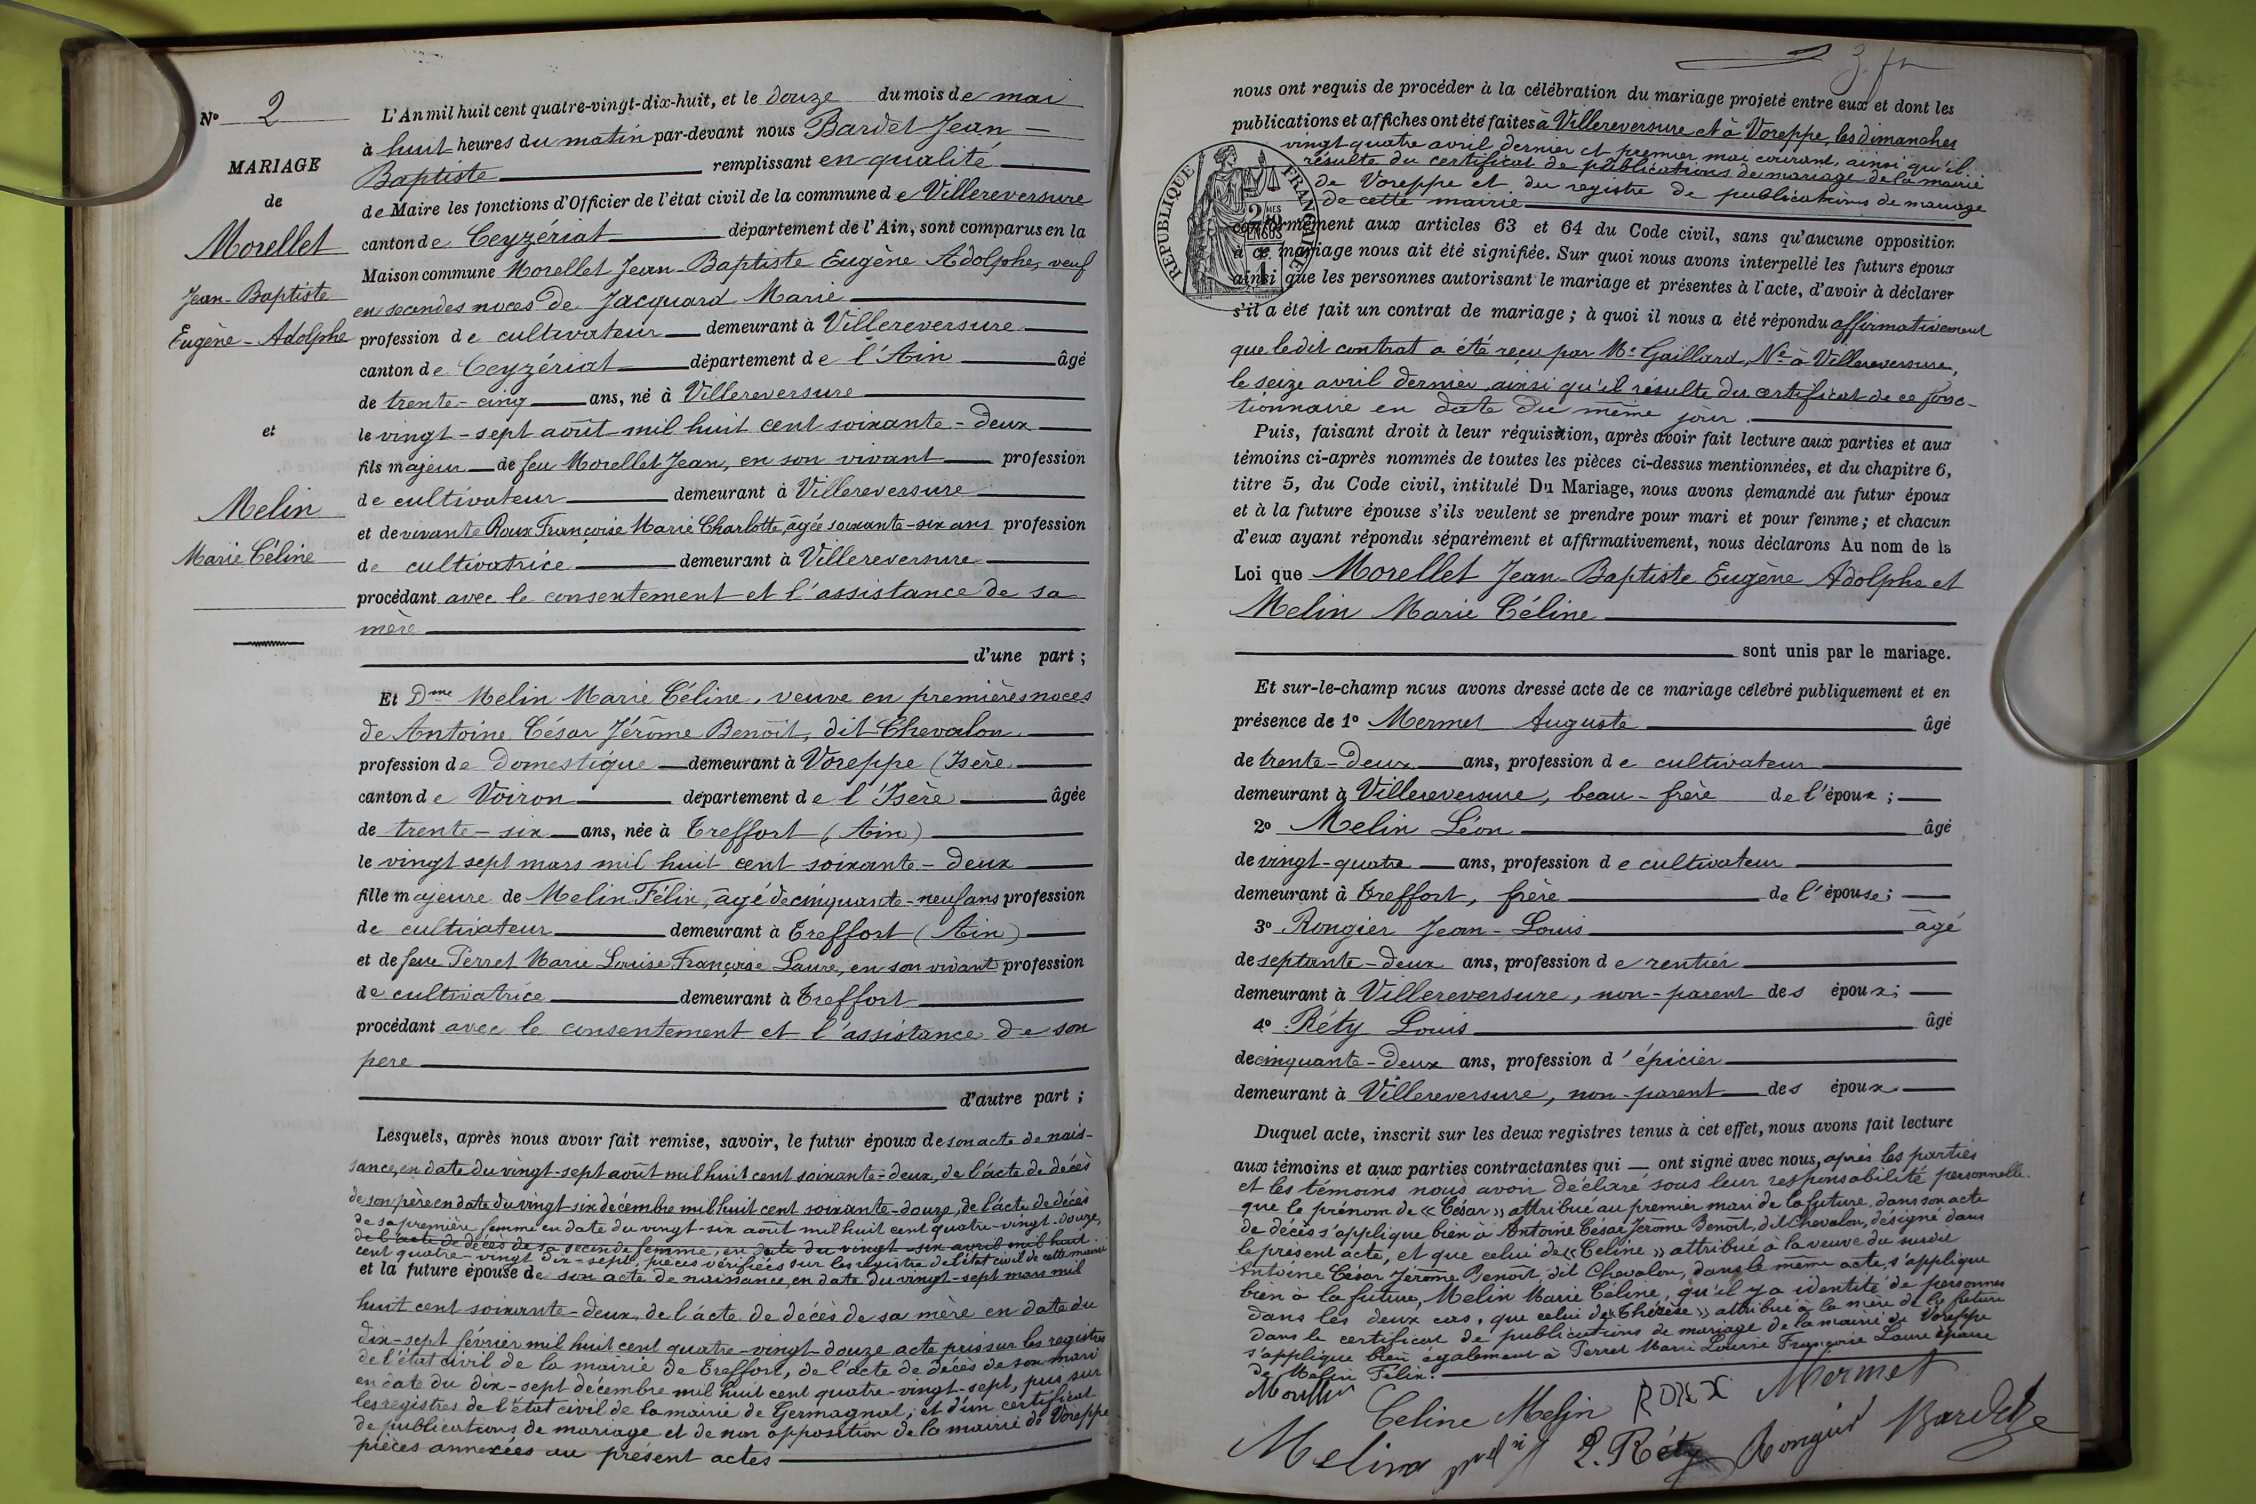 Nº 2
MARIAGE
de
Morellet
Jean-Baptiste
Eugène-Adolphe
et
Melin
Marie Céline
L'An mil huit cent quatre-vingt-dix-huit, et le douze du mois de mai
à huit heures du matin par-devant nous Bardet Jean-
Baptiste remplissant en qualité
de Maire les fonctions d'Officier de l'état civil de la commune de Villereversure
canton de Ceyzériat département de l'Ain, sont comparus en la
Maison commune Morellet Jean-Baptiste Eugène Adolphe, veuf
en secondes noces de Jacquard Marie
profession de cultivateur demeurant à Villereversure
canton de Ceyzériat département de l'Ain âgé
de trente-cinq ans, né à Villereversure
le vingt-sept août mil huit cent soixante-deux
fils majeur de feu Morellet Jean, en son vivant profession
de cultivateur demeurant à Villereversure
et de vivante Roux Françoise Marie Charlotte, âgée soixante-six ans profession
de cultivatrice demeurant à Villereversure
procédant avec le consentement et l'assistance de sa
mère
d'une part ;
Et Dme Melin Marie Céline, veuve en premières noces
de Antoine César Jérôme Benoît, dit Chevalon
profession de Domestique demeurant à Voreppe (Isère
canton de Voiron département de l'Isère âgée
de trente-six ans, née à Treffort (Ain)
le vingt sept mars mil huit cent soixante-deux
fille majeure de Melin Félix, âgé de cinquante-neuf ans profession
de cultivateur demeurant à Treffort (Ain)
et de feue Perret Marie Louise Françoise Laure, en son vivant profession
de cultivatrice demeurant à Treffort
procédant avec le consentement et l'assistance de son
pere
d'autre part ;
Lesquels, après nous avoir fait remise, savoir, le futur époux de son acte de nais-
sance, en date du vingt-sept août mil huit cent soixante-deux, de l'acte de décès
de son père en date du vingt-six décembre mil huit cent soixante-douze, de l'acte de décès
de sa première femme en date du vingt-six août mil huit cent quatre-vingt-douze,
de l'acte de décès de sa seconde femme, en date du vingt-six avril mil huit
cent quatre-vingt dix-sept, pièces vérifiées sur les registre de l'état civil de cette mairie
et la future épouse de son acte de naissance, en date du vingt-sept mars mil
huit cent soixante-deux, de l'acte de décès de sa mère en date du
dix-sept février mil huit cent quatre-vingt-douze acte pris sur les registres
de l'état civil de la mairie de Treffort, de l'acte de décès de son mari
en date du dix-sept décembre mil huit cent quatre-vingt-sept, pris sur
les registres de l'état civil de la mairie de Germagnat, et d'un certificat
de publications de mariage et de non opposition de la mairie de Voreppe
pièces annexées au présent actes
nous ont requis de procéder à la célébration du mariage projeté entre eux et dont les
publications et affiches ont été faites à Villereversure et à Voreppe, les dimanches
vingt quatre avril dernier et premier mai courant, ainsi qu'il
résulte du certificat de publications de mariage de la mairie
de Voreppe et du registre de publications de mariage
de cette mairie
RÉPUBLIQUE FRANÇAISE
conformément aux articles 63 et 64 du Code civil, sans qu'aucune opposition
à ce mariage nous ait été signifiée. Sur quoi nous avons interpellé les futurs époux
ainsi que les personnes autorisant le mariage et présentes à l'acte, d'avoir à déclarer
s'il a été fait un contrat de mariage ; à quoi il nous a été répondu affirmativement
que ledit contrat a été reçu par Me Gaillard, Ne à Villereversure,
le seize avril dernier ainsi qu'il résulte du certificat de ce fonc-
tionnaire en date du même jour.
Puis, faisant droit à leur réquisition, après avoir fait lecture aux parties et aux
témoins ci-après nommés de toutes les pièces ci-dessus mentionnées, et du chapitre 6,
titre 5, du Code civil, intitulé Du Mariage, nous avons demandé au futur époux
et à la future épouse s'ils veulent se prendre pour mari et pour femme ; et chacun
d'eux ayant répondu séparément et affirmativement, nous déclarons Au nom de la
Loi que Morellet Jean-Baptiste Eugène Adolphe et
Melin Marie Céline
sont unis par le mariage.
Et sur-le-champ nous avons dressé acte de ce mariage célébré publiquement et en
présence de 1º Mermet Auguste âgé
de trente-deux ans, profession de cultivateur
demeurant à Villereversure, beau-frère de l'époux ;
2º Melin Léon âgé
de vingt-quatre ans, profession de cultivateur
demeurant à Treffort, frère de l'épouse ;
3º Rongier Jean-Louis âgé
de septante-deux ans, profession de rentier
demeurant à Villereversure, non-parent des époux ;
4º Réty Louis âgé
de cinquante-deux ans, profession d'épicier
demeurant à Villereversure, non-parent des époux
Duquel acte, inscrit sur les deux registres tenus à cet effet, nous avons fait lecture
aux témoins et aux parties contractantes qui ont signé avec nous, après les parties
et les témoins nous avoir déclaré sous leur responsabilité personnelle
que le prénom de «César» attribué au premier mari de la future dans son acte
de décès s'applique bien à Antoine César Jérôme Benoît, dit Chevalon, désigné dans
le présent acte, et que celui de «Céline» attribué à la veuve du susdit
Antoine César Jérôme Benoît dit Chevalon, dans le même acte, s'applique
bien à la future, Melin Marie Céline, qu'il y a identité de personnes
dans les deux cas, que celui de «Thérèse» attribué à la mère de la future
dans le certificat de publications de mariage de la mairie de Voreppe
s'applique bien également à Perret Marie Louise Françoise Laure épouse
de Melin Félix.
Celine Melin ROUX Mermet
Melin L. Réty Rongier Bardet